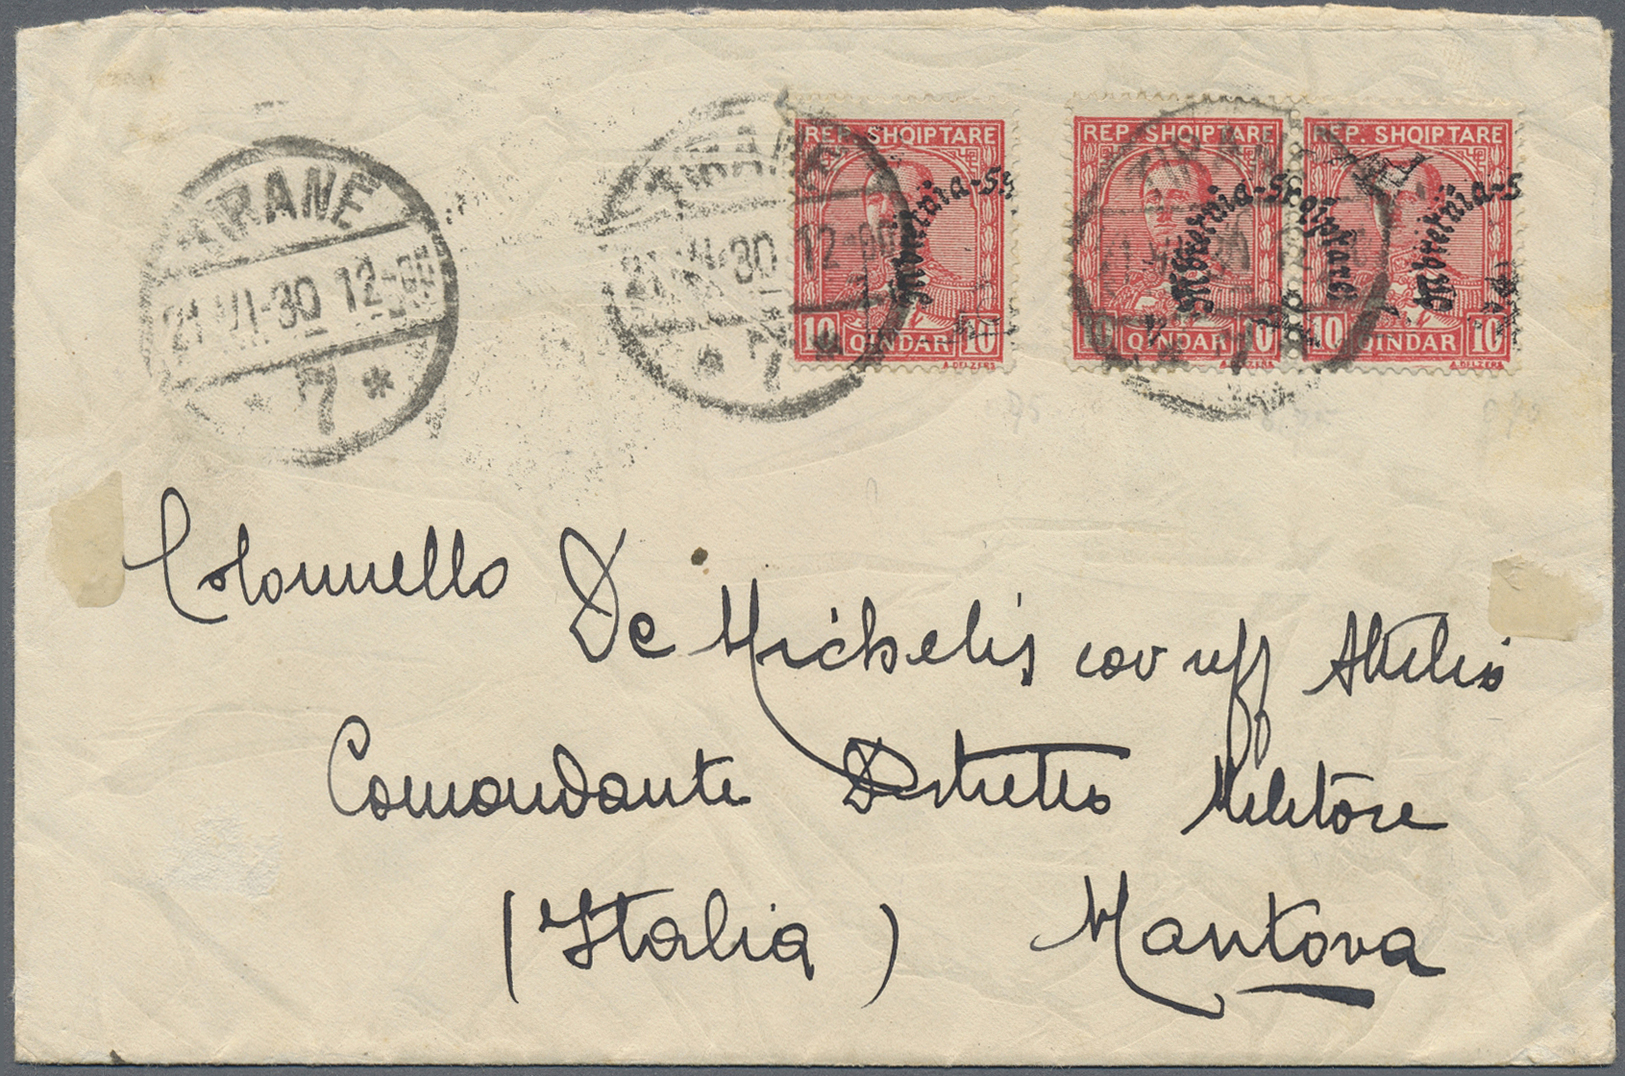 TIRANE
21 VI-30 12-00
* 7 *
TIRANE
21 VI-30 12-00
* 7 *
REP. SHQIPTARE
10 QINDAR 10
REP. SHQIPTARE
Mbretnia-Shqiptare
10 QINDAR 10
A. DELZERS
REP. SHQIPTARE
Mbretnia-S
10 QINDAR 10
A. DELZERS
Colonnello De Michelis cav uff Attilio
Comandante Distretto Militare
(Italia) Mantova